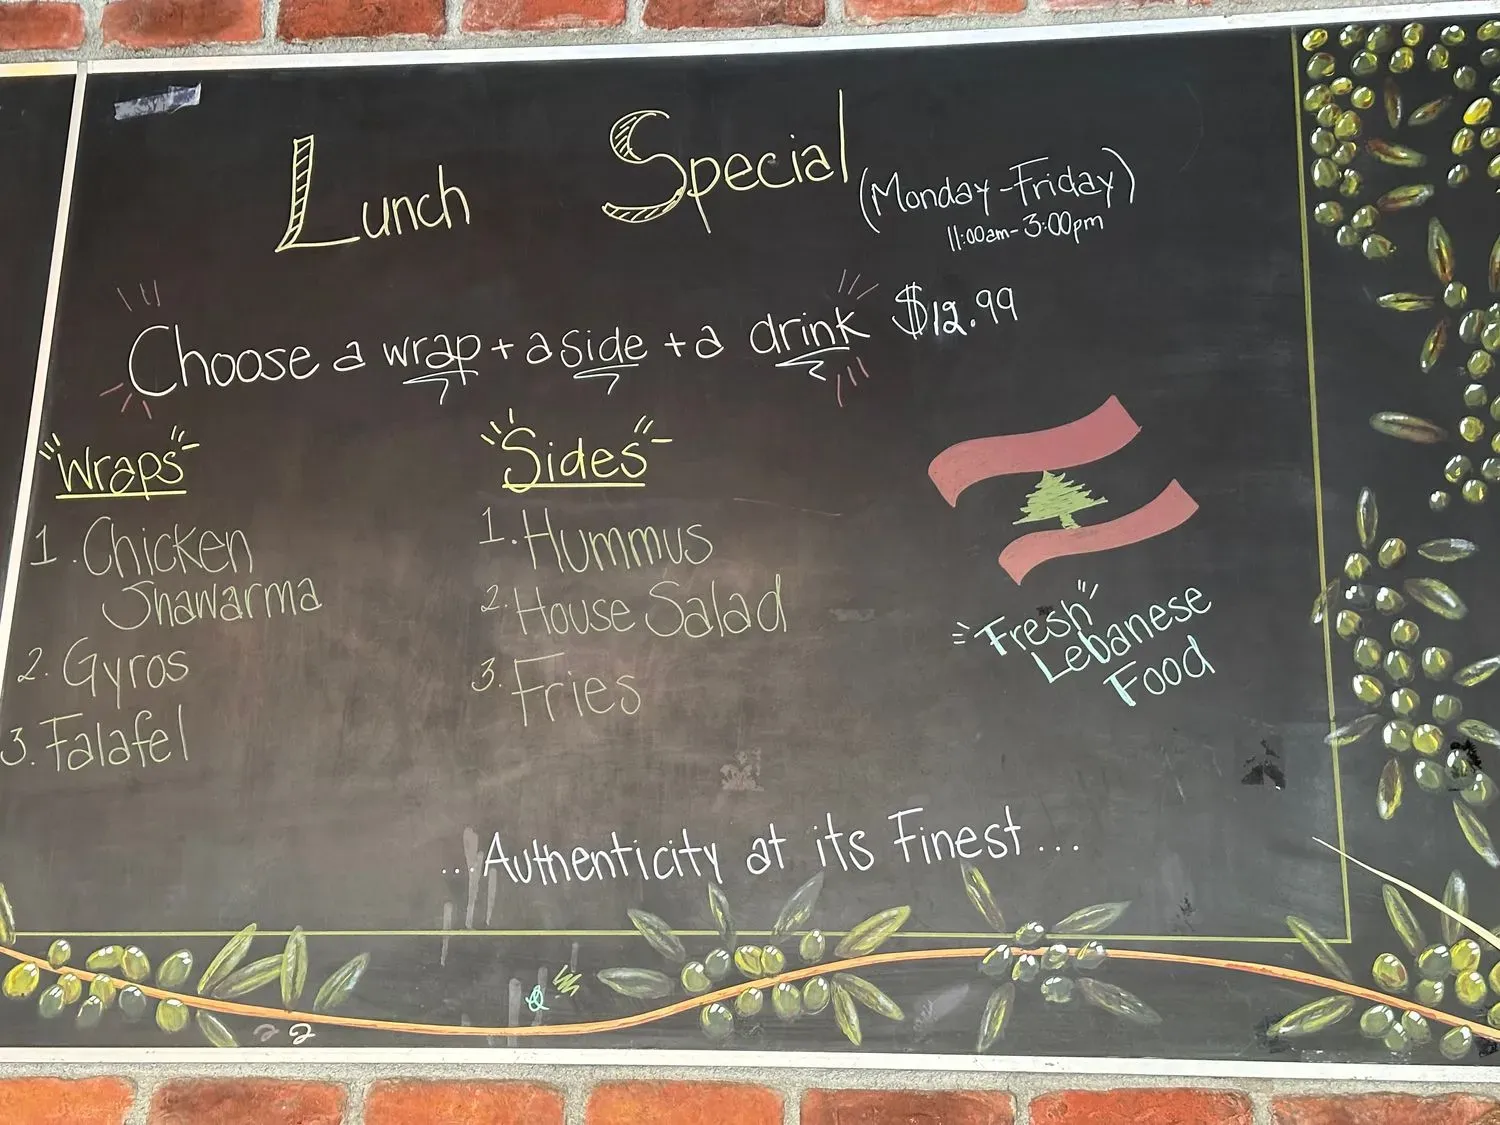 Lunch Special (Monday-Friday)
11:00am-3:00pm
Choose a wrap + a side + a drink $12.99
"Wraps"
1. Chicken
Shawarma
2. Gyros
3. Falafel
"Sides"
1. Hummus
2. House Salad
3. Fries
"Fresh"
Lebanese
Food
...Authenticity at its Finest...